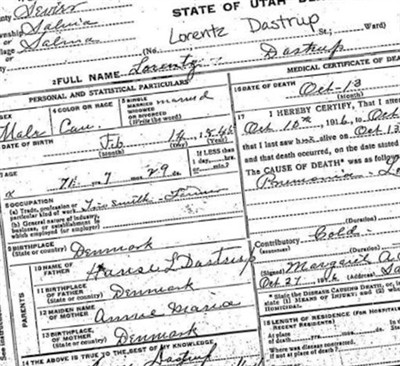 STATE OF UTAH DE
Lorentz Dastrup
County Sevier
Township Salina
Village
Salina
(No.
St.;
Ward)
2 FULL NAME Lorentz Dastrup
PERSONAL AND STATISTICAL PARTICULARS
MEDICAL CERTIFICATE OF DEA
SEX
4 COLOR OR RACE
5 SINGLE
MARRIED
WIDOWED
OR DIVORCED
(Write the word)
Married
Male
Cau.
DATE OF BIRTH
Feb 14, 1845
(Month)
(Day)
(Year)
AGE
71 7 29
If LESS than
1 day,
hrs.
or
min.?
OCCUPATION
(a) Trade, profession or
particular kind of work
Tin smith - Farmer
(b) General nature of industry,
business, or establishment in
which employed (or employer)
9 BIRTHPLACE
(State or country)
Denmark
PARENTS
10 NAME OF
FATHER
Hanse L Dastrup
11 BIRTHPLACE
OF FATHER
(State or country)
Denmark
12 MAIDEN NAME
OF MOTHER
Annie Marie
13 BIRTHPLACE
OF MOTHER
(State or country)
Denmark
14 THE ABOVE IS TRUE TO THE BEST OF MY KNOWLEDGE
Dastrup
16 DATE OF DEATH
Oct-13
(Month)
17 I HEREBY CERTIFY, That I atten
Oct 10th, 1916, to Oct
that I last saw h alive on Oct 13
and that death occurred, on the date stated
The CAUSE OF DEATH* was as follow
Pneumonia - Lo
(Duration)
Contributory Cold
(Duration)
(Signed) Margaret A. C
Oct 27, 1916 (Address) Sa
*State the DISEASE CAUSING DEATH, or, in
state (1) MEANS OF INJURY; and (2)
HOMICIDAL.
18 LENGTH OF RESIDENCE (FOR HOSPITALS
RECENT RESIDENTS)
At place
of death
yrs.
Where was disease contracted,
if not at place of death?